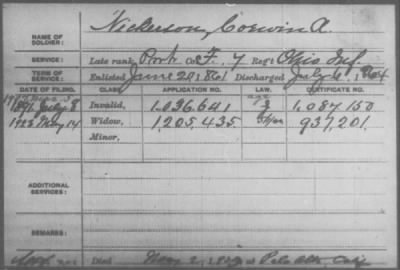 Nickerson, Corwin A.
NAME OF SOLDIER:
SERVICE: Late rank, Prvt. Co. F, 7 Reg't Ohio Inf.
TERM OF SERVICE: Enlisted June 20, 1861 Discharged July 6, 1864
DATE OF FILING. CLASS. APPLICATION NO. LAW. CERTIFICATE NO.
1891 July 8 Invalid, 1,036,641 1,087,150
1923 May 14 Widow, 1,205,435 937,201
Minor,
ADDITIONAL SERVICES:
REMARKS:
Died May 2, at Palo Alto Calif